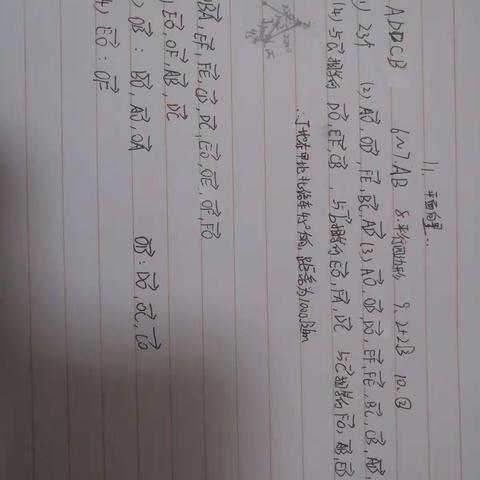 11. 平面向量...
ADDCB 6~7.AB 8.平行四边形 9. 2+2√3 10.③
1) 23个 (2) AO⃗, OD⃗, FE⃗, BC⃗, AD⃗ (3) AO⃗, OD⃗, DO⃗, EF⃗, FE⃗, BC⃗, CB⃗, AD⃗,
(4) 与a⃗相等的 DO⃗, EF⃗, CB⃗, 与b⃗相等的 EO⃗, FA⃗, DC⃗ 与c⃗相等的 FO⃗, AB⃗, ED⃗
∴丁地在甲地北偏东45°方向, 距离为1000√2km
BA⃗, EF⃗, FE⃗, CD⃗, DC⃗, EO⃗, OE⃗, OF⃗, FO⃗
) EO⃗, OF⃗, AB⃗, DC⃗
) OB⃗: BO⃗, AO⃗, OA⃗ OD⃗: DO⃗, OC⃗, CO⃗
4) EO⃗: OF⃗